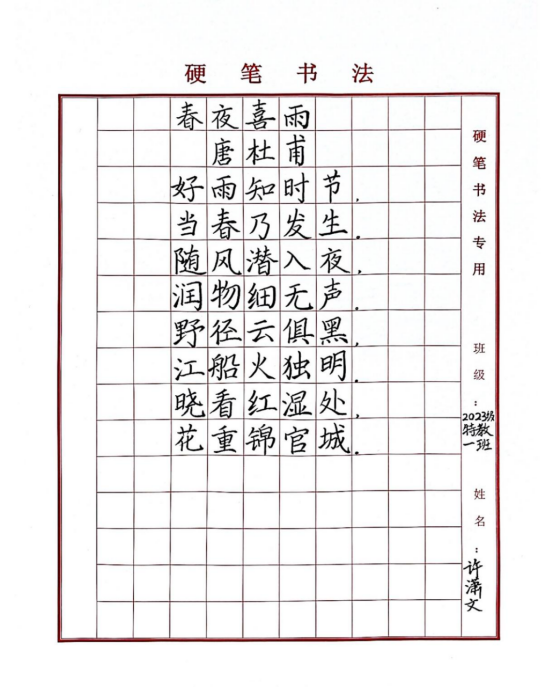 硬笔书法
春夜喜雨
唐杜甫
好雨知时节，
当春乃发生。
随风潜入夜，
润物细无声。
野径云俱黑，
江船火独明。
晓看红湿处，
花重锦官城。
硬笔书法专用
班级：
2023级
特教
一班
姓名：
许潇文